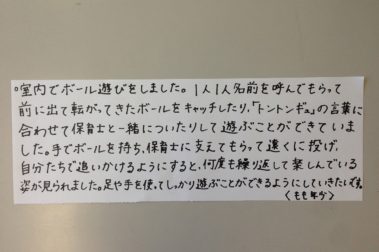 ○室内でボール遊びをしました。1人1人名前を呼んでもらって
前に出て転がってきたボールをキャッチしたり、「トントンギュ」の言葉に
合わせて保育士と一緒についたりして遊ぶことができていま
した。手でボールを持ち、保育士に支えてもらって遠くに投げ、
自分たちで追いかけるようにすると、何度も繰り返して楽しんでいる
姿が見られました。足や手を使ってしっかり遊ぶことができるようにしていきたいです。
〈もも年少〉